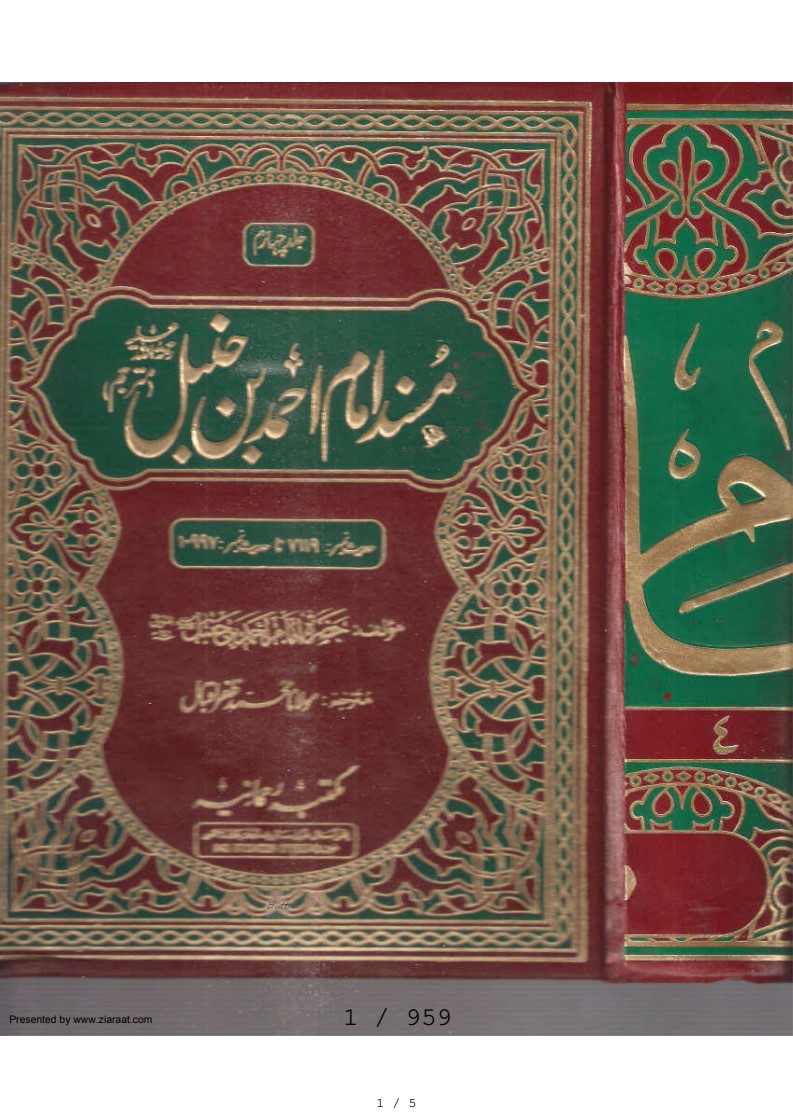 جلد چہارم
مُسند امام احمد بن حنبل
(مترجم)
حدیث نمبر: ۷۱۱۹ تا حدیث نمبر: ۱۰۹۹۷
مؤلف: حضرت امام احمد بن حنبل
مترجم: مولانا محمد ظفر اقبال
مکتبہ رحمانیہ
٤
Presented by www.ziaraat.com
1 / 959
1 / 5